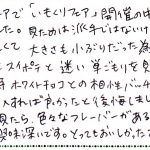 ェアで「いもくりフェア」開催の中
した。見ためは派手ではないけ
して 大きさも小ぶりだった為
とスイポテと迷い単ごもりを見
ホワイトチョコとの相性バッチ
入れば良かったと後悔しまし
見たら、色々なフレーバーがある
興味深いです。とってもおいしかったで